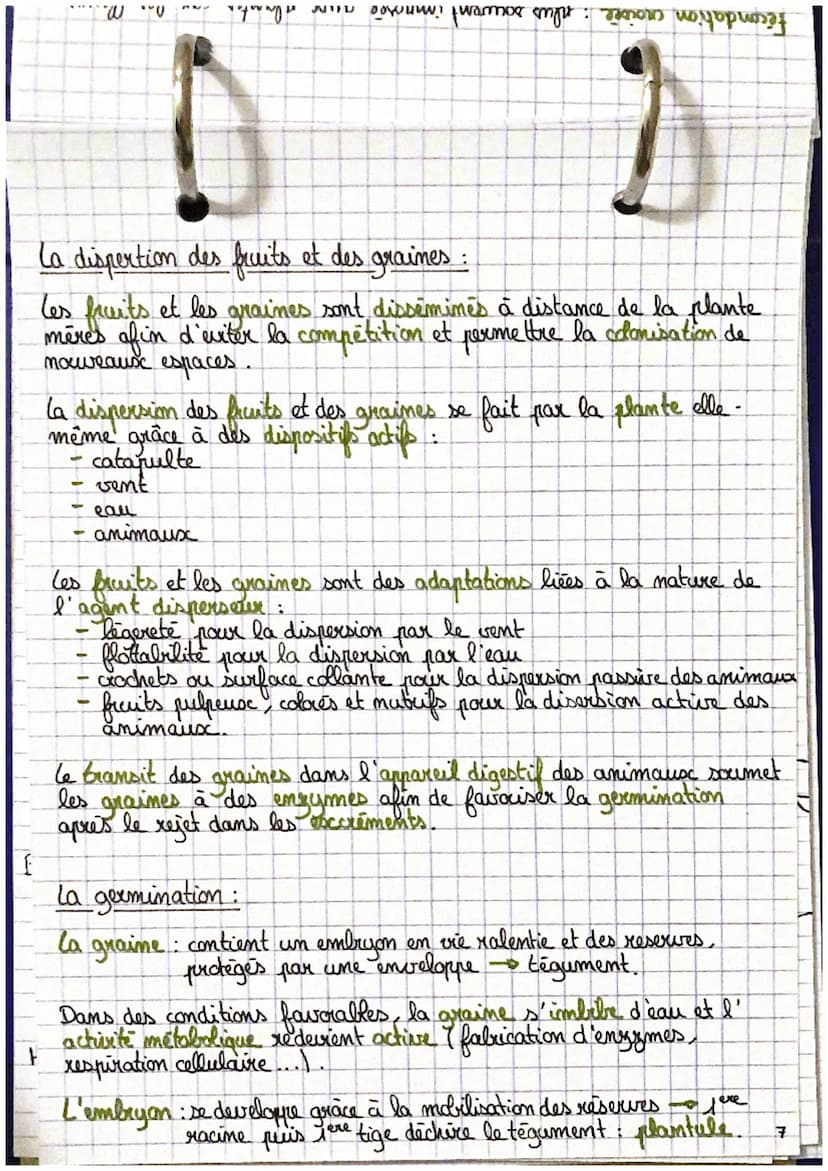 Fécondation croisée : plus souvent innovée
La dispertion des fruits et des graines :
Les fruits et les graines sont disséminés à distance de la plante
mères afin d'eviter la compétition et permettre la colonisation de
nouveaux espaces.
La dispersion des fruits et des graines se fait par la plante elle-
même grâce à des dispositifs actifs :
- catapulte
- vent
- eau
- animaux
Les fruits et les graines sont des adaptations liées à la nature de
l'agent disperseur :
- légereté pour la dispersion par le vent
- flottabilité pour la dispersion par l'eau
- crochets ou surface collante pour la dispersion passive des animaux
- fruits pulpeux, colorés et nutritifs pour la disersion active des
animaux.
Le transit des graines dans l'appareil digestif des animaux soumet
les graines à des enzymes afin de favoriser la germination
après le rejet dans les excréments.
La germination :
La graine : contient un embryon en vie ralentie et des reserves,
protégés par une enveloppe → tégument.
Dans des conditions favorables, la graine s'imbibe d'eau et l'
activité métabolique redevient active (fabrication d'enzymes,
respiration cellulaire ...).
L'embryon : se developpe grâce à la mobilisation des réserves → 1ère
racine puis 1ère tige déchire le tégument : plantule.
7